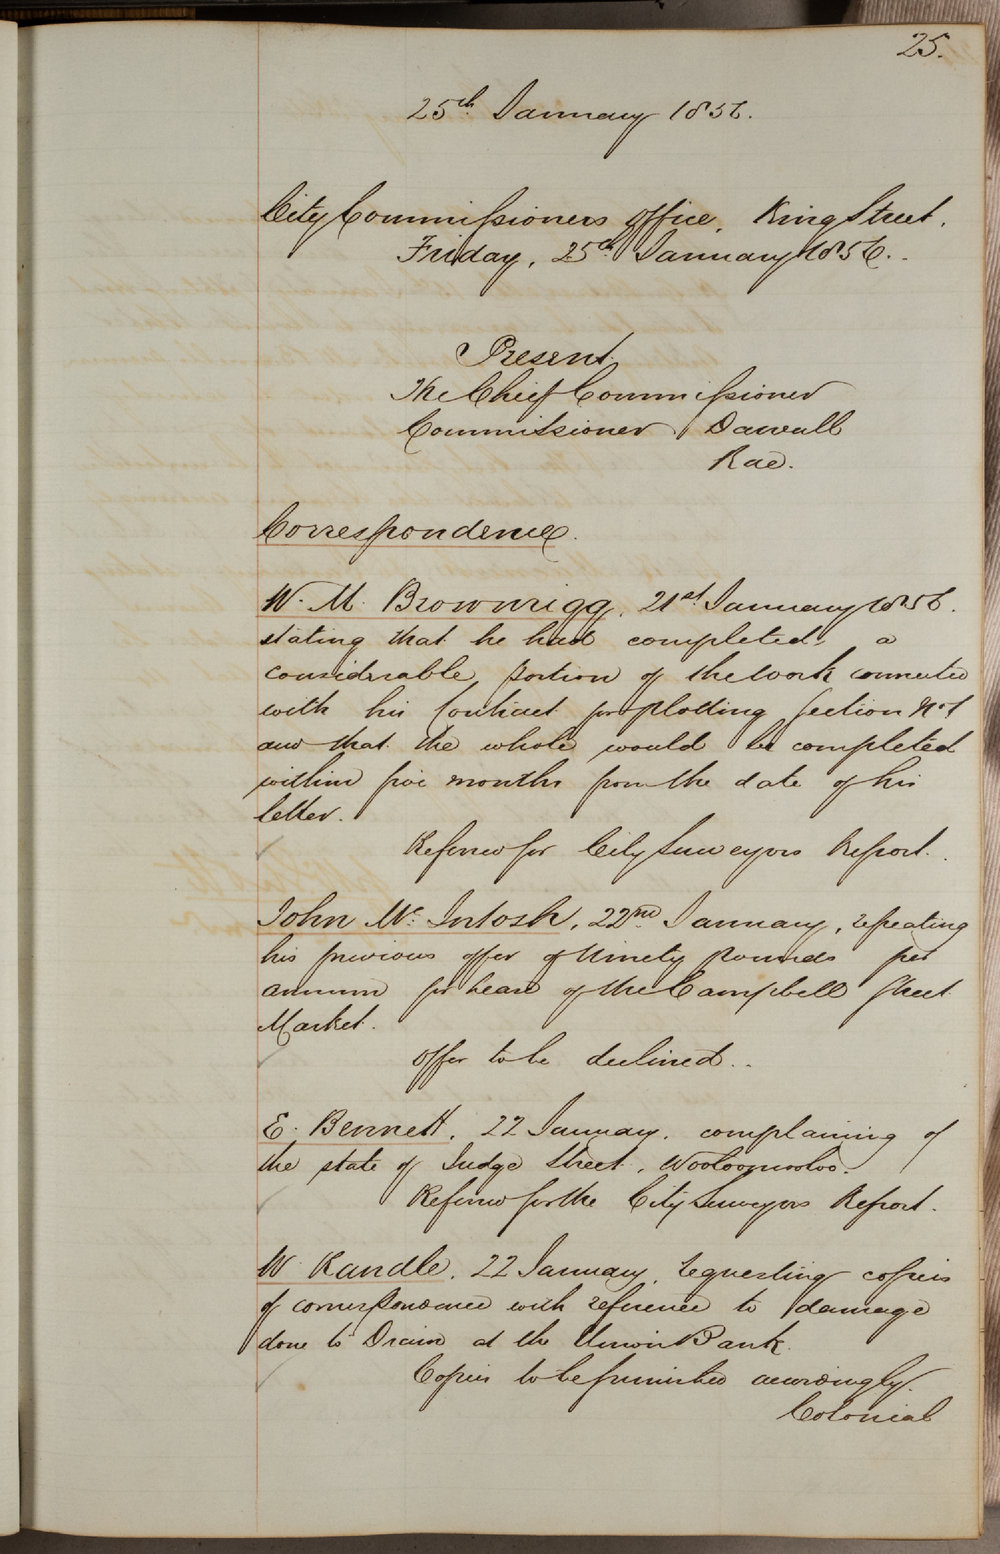 25.
25th January 1856.
City Commissioners Office, King Street.
Friday, 25th January 1856.
Present
The Chief Commissioner
Commissioner Darvall
Rae.
Correspondence.
W. M. Brownrigg, 21st January 1856.
stating that he had completed, a
considerable portion of the work connected
with his Contract for plotting Section No 1
and that the whole would be completed
within five months from the date of his
letter.
Referred for City Surveyors Report.
John Mc Intosh, 22nd January, repeating
his previous offer of Ninety Pounds per
annum for lease of the Campbell Street
Market.
Offer to be declined.
E. Bennett, 22 January, complaining of
the state of Judge Street, Wooloomooloo.
Referred for the City Surveyors Report.
W Randle, 22 January, requesting copies
of correspondence with reference to damage
done to Drain at the Union Bank.
Copies to be furnished accordingly.
Colonial